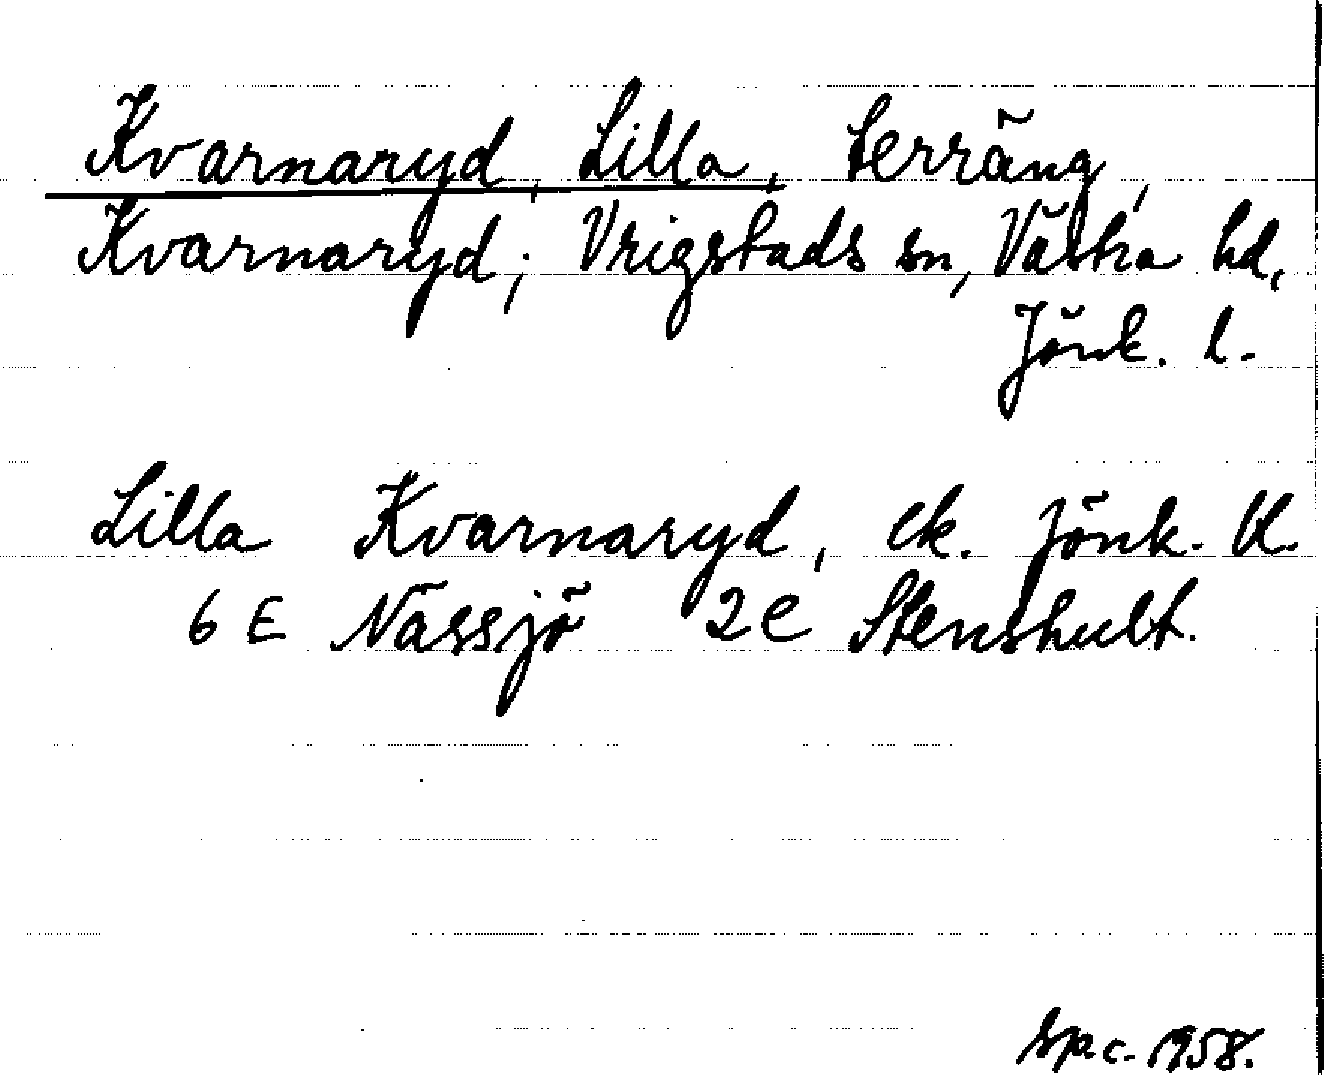 Kvarnaryd, Lilla, terräng,
Kvarnaryd; Vrigstads sn, Västra hd,
Jönk. l.
Lilla Kvarnaryd, ek. Jönk. bl.
6 E Nässjö 2 e Stenshult.
1958.